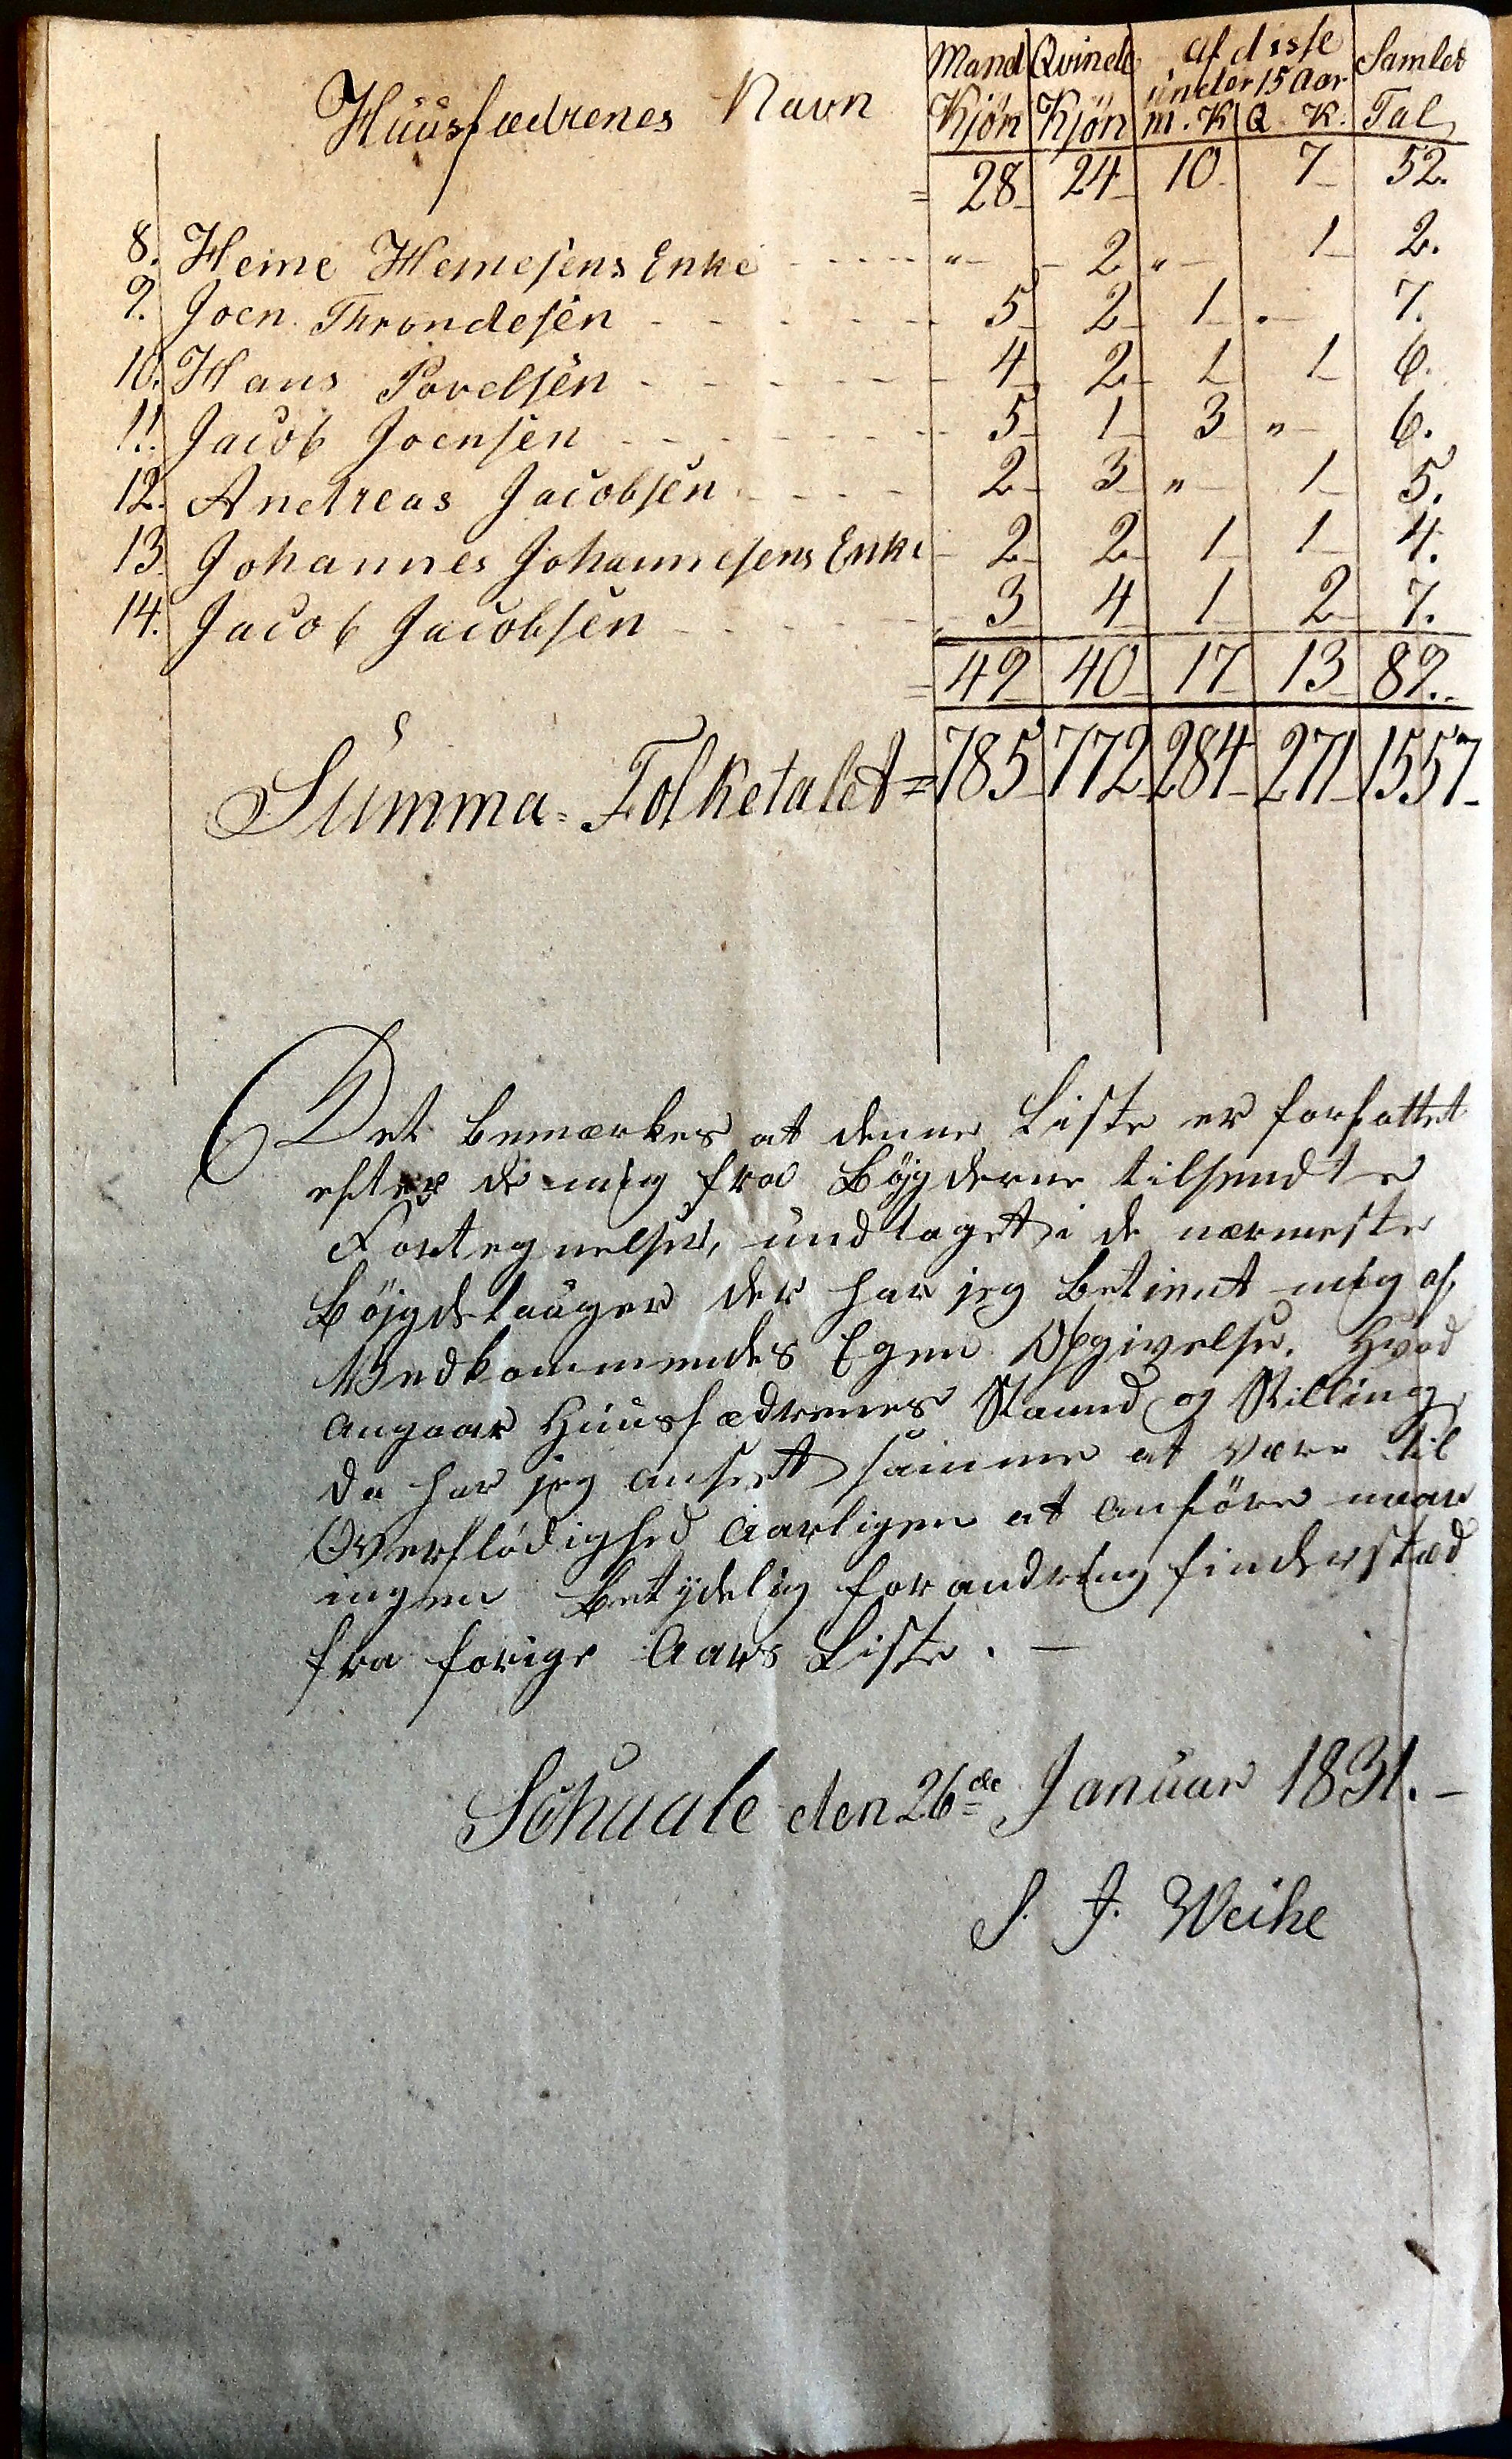 Huusfædrenes Navn | Mand Kjön | Qvinde Kjön | af disse under 15 Aar m. K. | Q. K. | Samlet Tal
= 28 24 10 7 52.
8. Heine Heinesens Enke - - - - " 2 " 1 2.
9. Joen Throndesen - - - - - - 5 2 1 " 7.
10. Hans Povelsen - - - - - - 4 2 1 1 6.
11. Jacob Joensen - - - - - - - 5 1 3 " 6.
12. Andreas Jacobsen - - - - 2 3 " 1 5.
13. Johannes Johannesens Enke - 2 2 1 1 4.
14. Jacob Jacobsen - - - - - 3 4 1 2 7.
= 49 40 17 13 89.
Summa. Folketalet = 785 772 284 271 1557
Det bemærkes at denne Liste er forfattet
efter de mig fra Böjgderne tilsendte
Fortegnelser, undtaget i de nærmeste
Böjgdelauger der har jeg betient mig af
Vedkommendes Egen Opgivelse. Hvad
angaar Huusfædrenes Stand og Stilling,
da har jeg anseet samme at være til
Overflödighed aarligen at anföre naar
ingen betydelig forandring finder stæd
fra forige Aars Liste. —
den 26de Januar 1831. —
J. Weihe